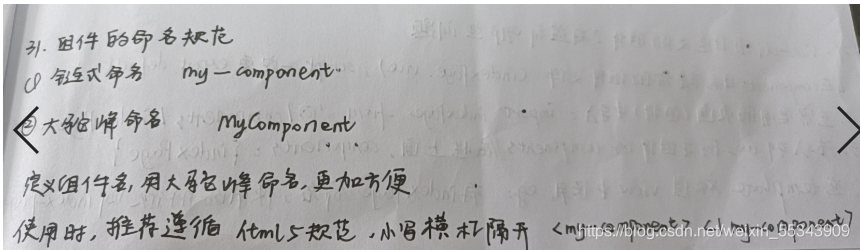 31. 组件的命名规范
① 链式命名 my-component
② 大驼峰命名 MyComponent
定义组件名,用大驼峰命名,更加方便
使用时,推荐遵循 html5规范,小写横杠隔开 <my-component></my-component>
https://blog.csdn.net/weixin_55343909